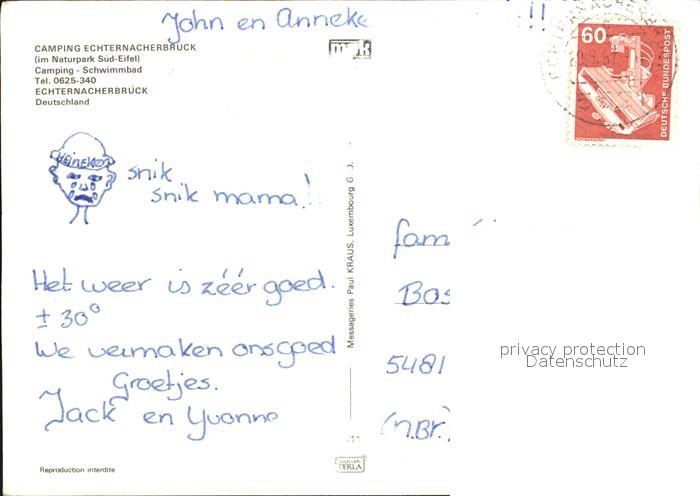 John en Anneke !!
CAMPING ECHTERNACHERBRÜCK
(im Naturpark Süd-Eifel)
Camping - Schwimmbad
Tel. 0625-340
ECHTERNACHERBRÜCK
Deutschland
mpk
60
DEUTSCHE BUNDESPOST
Heineken
snik
snik mama!!
Het weer is zéér goed.
± 30°
We vermaken ons goed
Groetjes.
Jack en Yvonne
Messageries Paul KRAUS, Luxembourg G. D.
fam
Bos
5481
(N.Br.)
privacy protection
Datenschutz
Reproduction interdite
PERLA